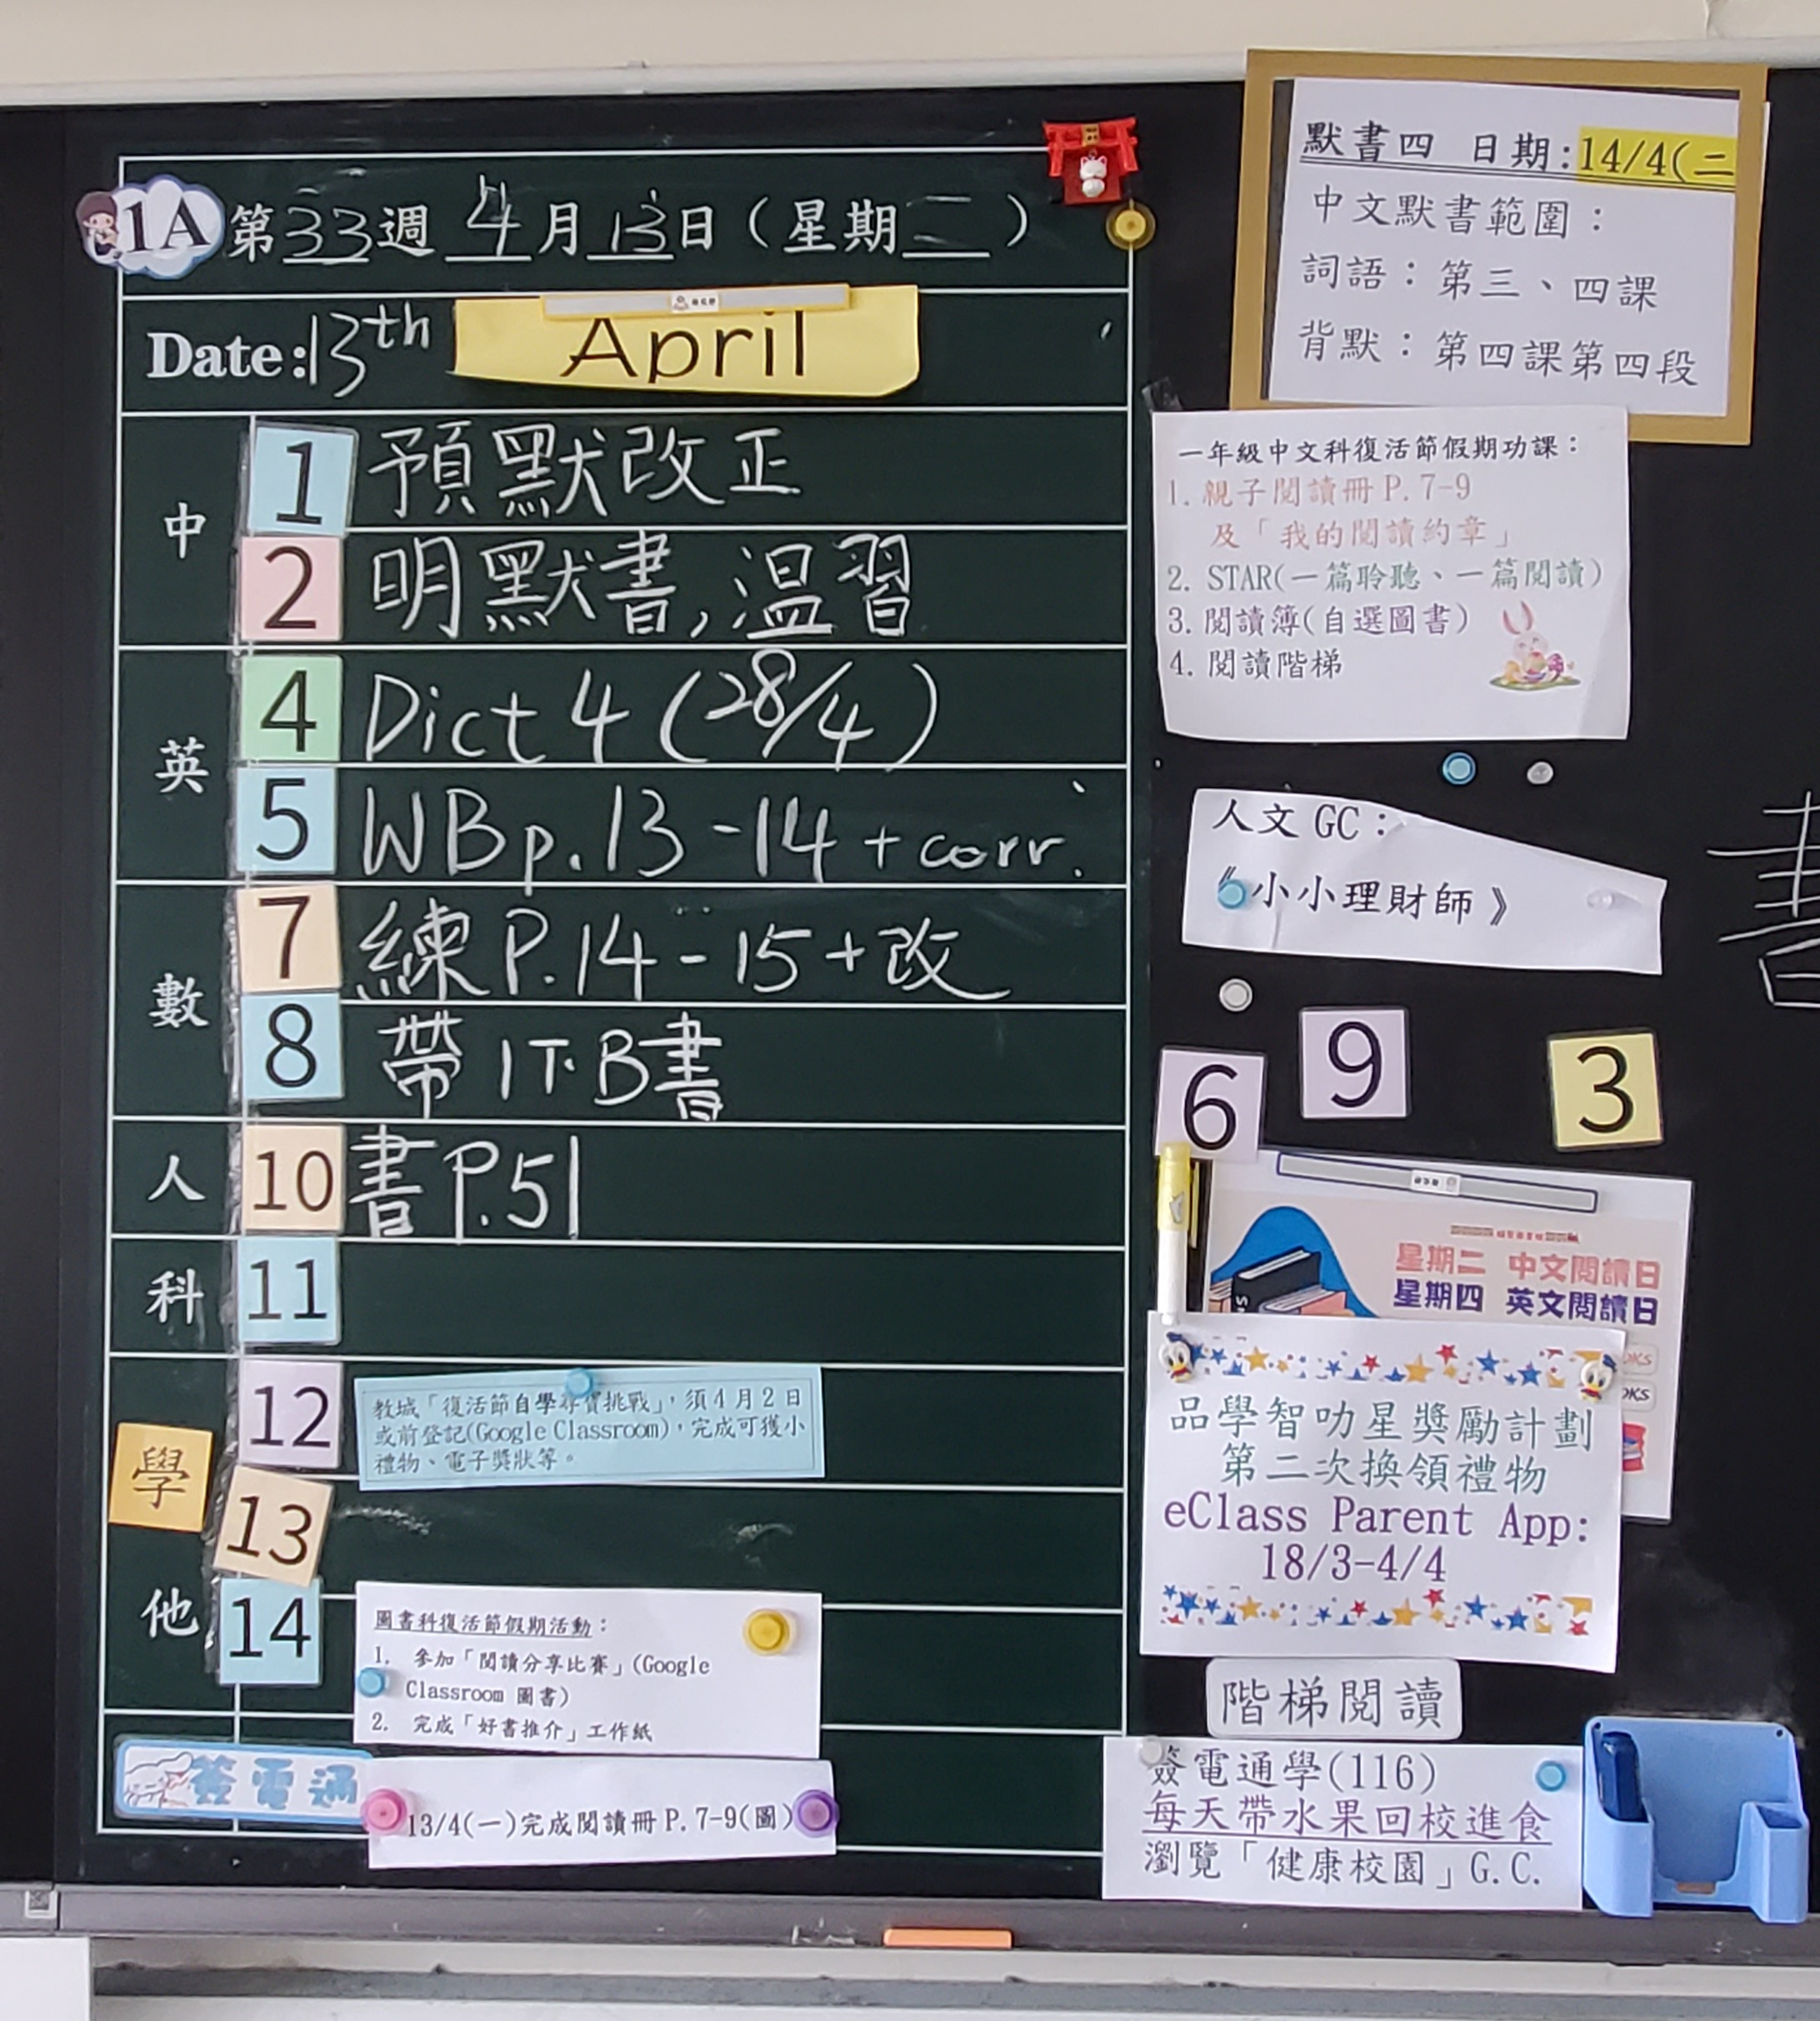 1A 第33週 4月13日（星期二）
Date: 13th April
中
1 預默改正
2 明默書,温習
英
4 Dict 4 (28/4)
5 WB p.13-14 + corr.
數
7 練P.14-15+改
8 帶 1T.B書
人
10 書P.51
科
11
學
12
教城「復活節自學尋寶挑戰」，須4月2日
或前登記(Google Classroom)，完成可獲小
禮物、電子獎狀等。
13
他
14
圖書科復活節假期活動：
1. 參加「閱讀分享比賽」(Google
Classroom 圖書)
2. 完成「好書推介」工作紙
簽電通
13/4(一)完成閱讀冊 P.7-9(圖)
默書四 日期:14/4(二
中文默書範圍：
詞語：第三、四課
背默：第四課第四段
一年級中文科復活節假期功課：
1. 親子閱讀冊 P.7-9
及「我的閱讀約章」
2. STAR(一篇聆聽、一篇閱讀)
3. 閱讀簿(自選圖書)
4. 閱讀階梯
人文 GC：
《小小理財師》
書
6 9 3
星期二 中文閱讀日
星期四 英文閱讀日
品學智叻星獎勵計劃
第二次換領禮物
eClass Parent App:
18/3-4/4
階梯閱讀
簽電通學(116)
每天帶水果回校進食
瀏覽「健康校園」G.C.